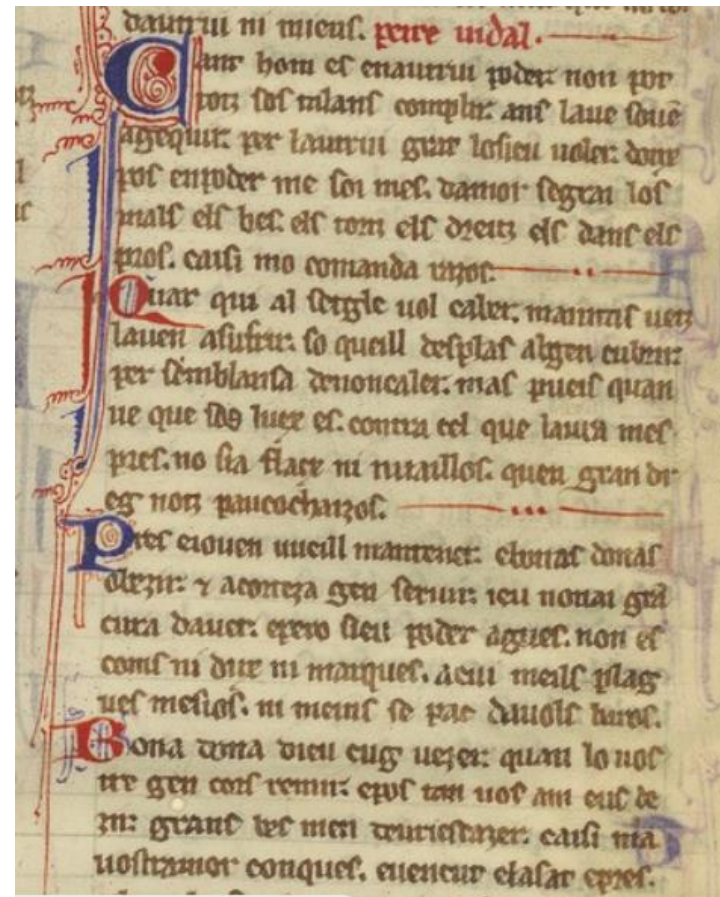 dautrui ni mieus. peire uidal.
Cant hom es enautrui poder. non pot
totz sos talans complir. ans laue souē
agequir. per lautrui grat losieu uoler. donc
pos enpoder me soi mes. damor segrai los
mals els bes. els tortz els dreitz els dans els
pros. caisi mo comanda razos.
Quar qui al segle uol caber. mantas uetz
lauen asufrir. so queill desplas abgen cubrir
per semblansa denoncaler. mas pueis quan
ue que sos luex es. contra cel que laura mes
pres. no sia flacx ni nuaillos. quen gran dr
eg notz pauc ochaizos.
Pretz eiouen uueill mantener. ebonas donas
obezir. ⁊ acorteza gen seruir. ieu nonai grā
cura dauer. epero sieu poder agues. non es
coms ni dux ni marques. acui meils plag
ues mesios. ni meins se pac dauols baros.
Bona dona dieu cug uezer. quan lo uos
tre gen cors remir. epos tan uos am eus de
zir. grans bes men deuriesdazer. caisi ma
uostramor conques. euencut elasat epres.